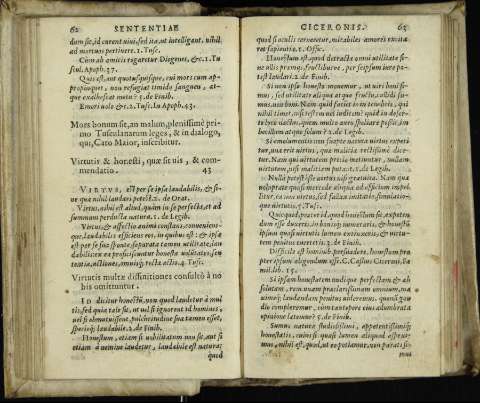 62 SENTENTIAE
dum sic, id curent uiui, sed ita, ut intelligant, nihil
ad mortuos pertinere. 1. Tusc.
Cum ab amicis rogaretur Diogenes, &c. 1. Tu
scul. Apoph. 37.
Quis est, aut quotusquisque, cui mors cum ap-
propinquet, non refugiat timido sanguen, at-
que exalbescat metu? 5. de Finib.
Emori nolo &c. 2. Tusc. In Apoph. 43.
Mors bonum sit, an malum, plenissimè pri-
mo Tusculanarum leges, & in dialogo,
qui, Cato Maior, inscribitur.
Virtutis & honesti, quæ sit uis, & com-
mendatio. 43
VIRTVS, est per se ipsa laudabilis, & si-
ne qua nihil laudari potest. 2. de Orat.
Virtus, nihil est aliud, quàm in se perfecta, et ad
summum perducta natura. 1. de Legib.
Virtus, est affectio animi constans, conueniens-
que, laudabiles efficiens eos, in quibus est: & ipsa
est per se sua sponte, separata tamen utilitate, lau
dabilis: ex ea proficiscuntur honestæ uoluntates, sen
tentiæ, actiones, omnisq; recta ratio. 4. Tusc.
Virtutis multæ diffinitiones consultò à no
bis omittuntur.
ID dicitur honestũ, non quod laudetur à mul
tis, sed quia tale sit, ut uel si ignorent id homines,
uel si obmutuissent, pulchritudine sua tamen esset,
specieq; laudabile. 2. de Finib.
Honestum, etiam si nobilitatum non sit, aut si
etiam à nemine laudetur, laudabile est natura:
quod
CICERONIS. 63
quod si oculis cerneretur, mirabiles amores excita-
ret sapientiæ. 1. Offic.
Honestum est, quod detracta omni utilitate si-
ne ullis præmijs, fructibusue, per seipsum iure po-
test laudari. 2. de Finib.
Si non ipso honesto monemur, ut uiri boni si-
mus, sed utilitate aliqua atque fructu, callidi su-
mus, non boni. Nam quid faciet is in tenebris, qui
nihil timet, nisi testem uel iudicem? quid in de-
serto loco nactus, quem multo auro spoliare possit, im
becillum atque solum? 1. de Legib.
Si emolumento non suapte natura uirtus experi-
tur, una erit uirtus, quæ malicia rectissimè dice-
tur. Nam qui uirtutem præmio metiuntur, nullam
uirtutem, nisi malitiam putant. 1. de Legib.
Nulla potest esse uirtus nisi gratuita. Nam quæ
uoluptate quasi mercede aliqua ad officium impel-
litur, ea non est uirtus, sed fallax imitatio, simulatio-
que uirtutis. 5. Tusc.
Difficile est hominibus persuadere, honestum pro-
pter ipsum eligendum esse. C. Cassius Ciceroni. Fa
mil. lib. 15.
Si ipsam honestatem undique perfectam & ab-
solutam, rem unam præclarissimam omnium, ma
ximeq; laudandam penitus uideremus, quonã gau
dio compleremur, cum tantopere eius adumbrata
opinione lætemur? 5. de Finib.
Sumus natura studiosissimi, appetentissimiq;
honestatis: cuius si quasi lumen aliquod aspexeri-
mus, nihil est, quod, ut eo potiamur, non parati si-
mus